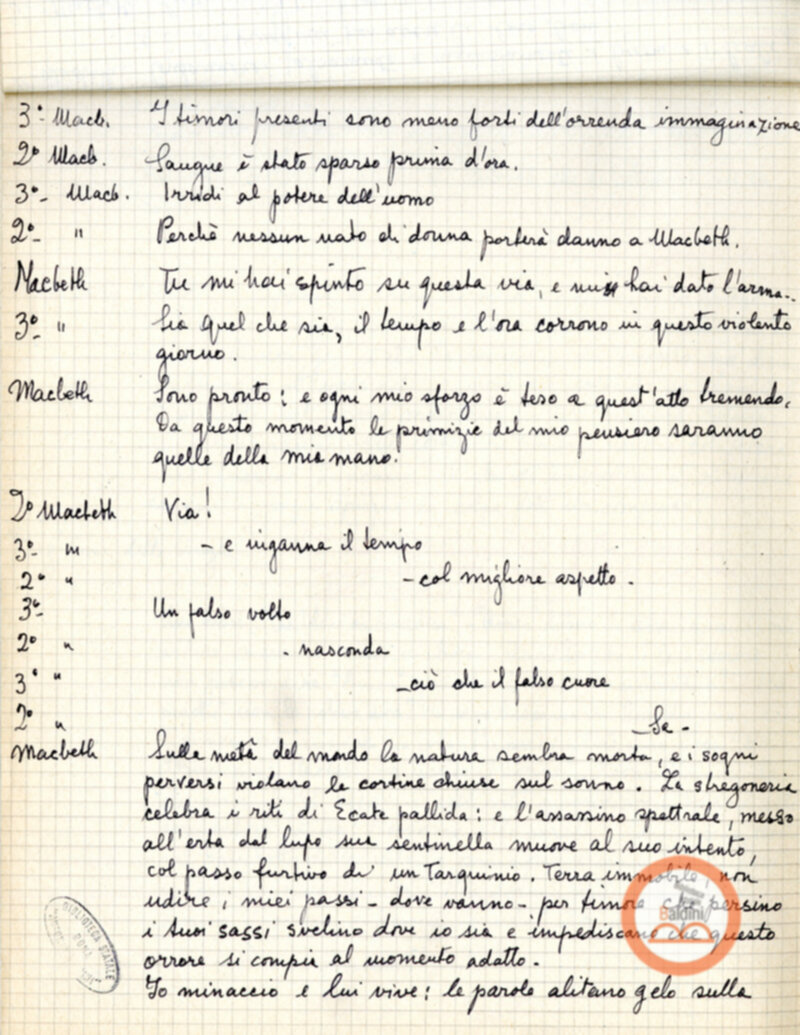 3° Macb. I timori presenti sono meno forti dell'orrenda immaginazione
2° Macb. Sangue è stato sparso prima d'ora.
3°- Macb. Irridi al potere dell'uomo
2°- " Perchè nessun nato di donna porterà danno a Macbeth.
Macbeth Tu mi hai spinto su questa via, e mi hai dato l'arma..
3°- " Sia quel che sia, il tempo e l'ora corrono in questo violento
giorno.
Macbeth Sono pronto: e ogni mio sforzo è teso a quest'atto tremendo.
Da questo momento le primizie del mio pensiero saranno
quelle della mia mano.
2° Macbeth Via!
3°- " - e inganna il tempo
2° " - col migliore aspetto.
3°- Un falso volto
2° " - nasconda
3° " - ciò che il falso cuore
2° " - Sa -
Macbeth Sulla metà del mondo la natura sembra morta, e i sogni
perversi violano le cortine chiuse sul sonno. La stregoneria
celebra i riti di Ecate pallida: e l'assassino spettrale, messo
all'erta dal lupo sua sentinella muove al suo intento,
col passo furtivo di un Tarquinio. Terra immobile, non
udire i miei passi - dove vanno - per timore che persino
i tuoi sassi svelino dove io sia e impediscano che questo
orrore si compia al momento adatto.
Io minaccio e lui vive: le parole alitano gelo sulla
BIBLIOTECA
Baldini